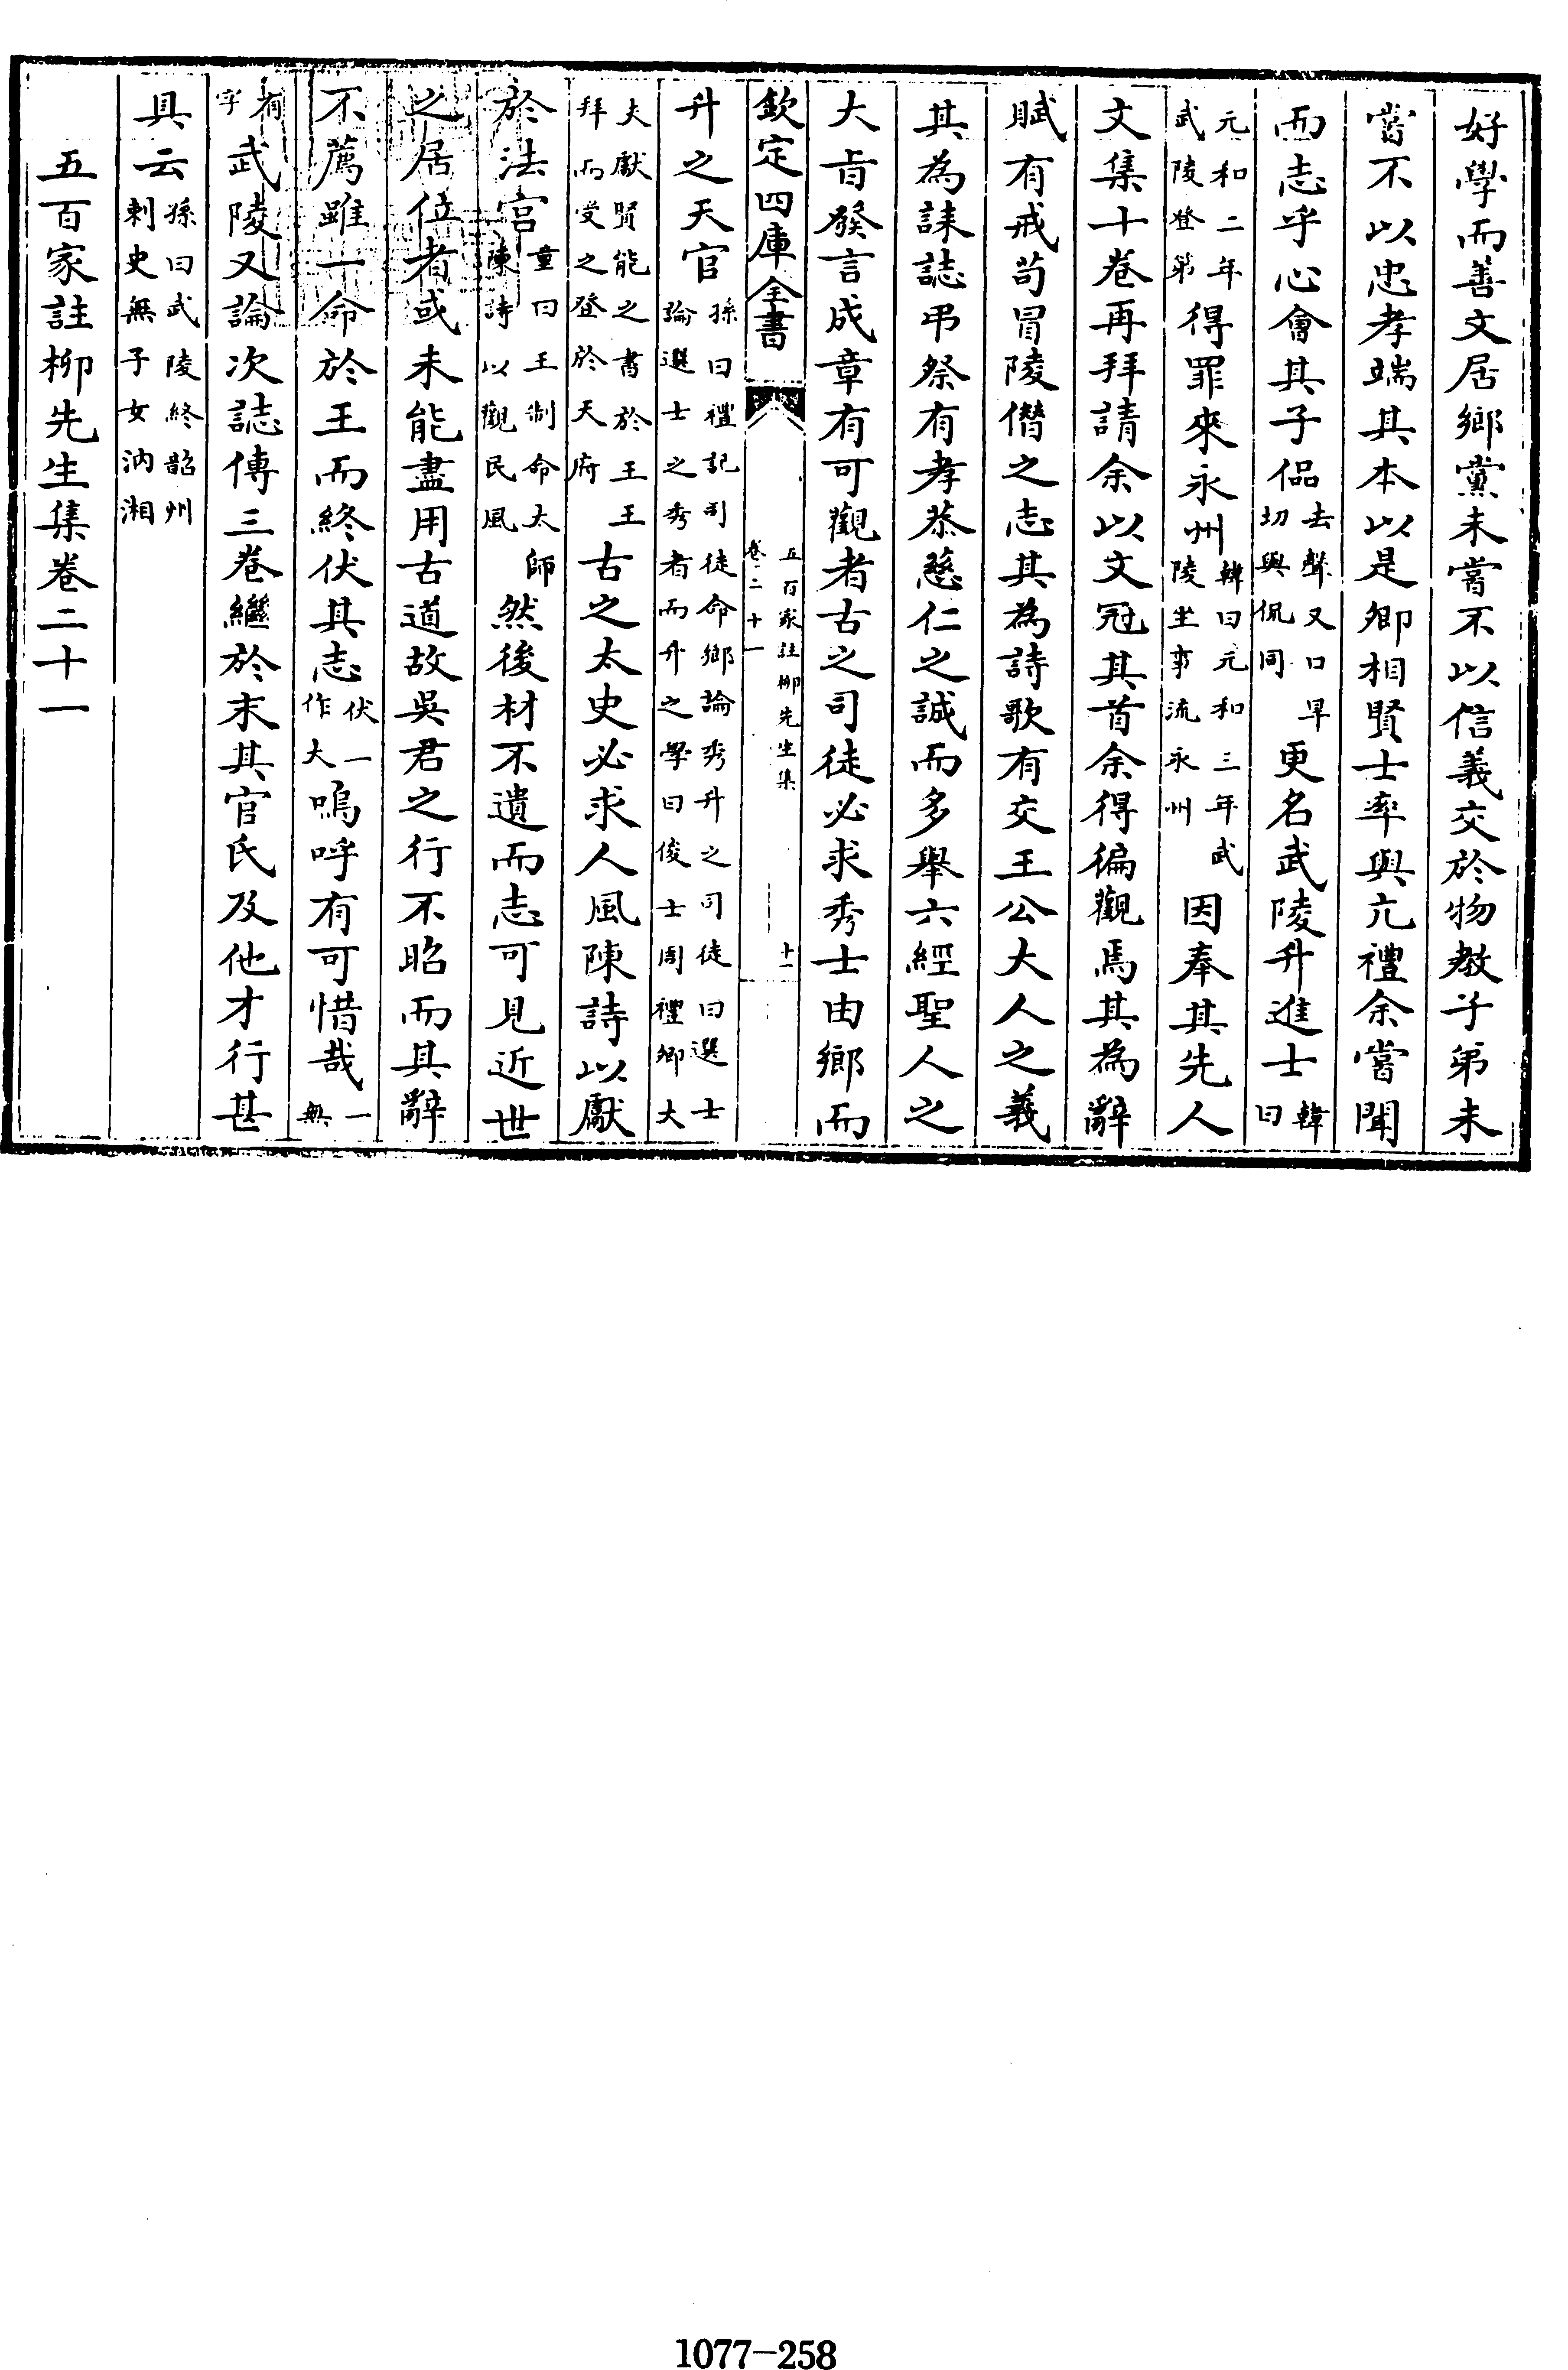 好學而善文居鄉黨未嘗不以信義交於物教子弟未
嘗不以忠孝端其本以是卿相賢士率與亢禮余嘗聞
而志乎心會其子侃去聲又口旱切與侃同更名武陵升進士韓曰
元和二年武陵登第得罪來永州韓曰元和三年武陵坐事流永州因奉其先人
文集十卷再拜請余以文冠其首余得徧觀焉其為辭
賦有戒苟冒陵僭之志其為詩歌有交王公大人之義
其為誄誌弔祭有孝恭慈仁之誠而多舉六經聖人之
大㫖發言成章有可觀者古之司徒必求秀士由鄉而
欽定四庫全書
五百家註柳先生集
卷二十一
十一
升之天官孫曰禮記司徒命鄉論秀升之司徒曰選士論選士之秀者而升之學曰俊士周禮卿大
夫獻賢能之書於王王拜而受之登於天府古之太史必求人風陳詩以獻
於法宮童曰王制命太師陳詩以觀民風然後材不遺而志可見近世
之居位者或未能盡用古道故吳君之行不昭而其辭
不薦雖一命於王而終伏其志伏一作大嗚呼有可惜哉一無
有字武陵又論次誌傳三卷繼於末其官氏及他才行甚
具云孫曰武陵終韶州刺史無子女汭湘
五百家註柳先生集卷二十一
1077-258